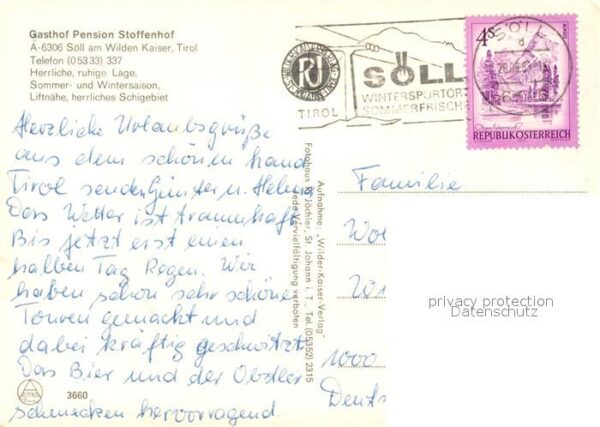 Gasthof Pension Stoffenhof
A-6306 Söll am Wilden Kaiser, Tirol
Telefon (05333) 337
Herrliche, ruhige Lage,
Sommer- und Wintersaison,
Liftnähe, herrliches Schigebiet
Herzliche Urlaubsgrüße
aus dem schönen Land
Tirol senden Günter u. Helma
Das Wetter ist traumhaft
Bis jetzt erst einen
halben Tag Regen. Wir
haben schon sehr schöne
Touren gemacht und
dabei kräftig geschwitzt
Das Bier und der Obstler
schmecken hervorragend.
3660
Aufnahme: „Wilder-Kaiser-Verlag"
Fotohaus R. Jöchler, St. Johann i. T., Tel. (05352) 2315
Jede Vervielfältigung verboten
TIROL
SÖLL
WINTERSPORTOR
SOMMERFRISCHE
SÖLL
4S
REPUBLIK ÖSTERREICH
Familie
1000
Deuts
privacy protection
Datenschutz